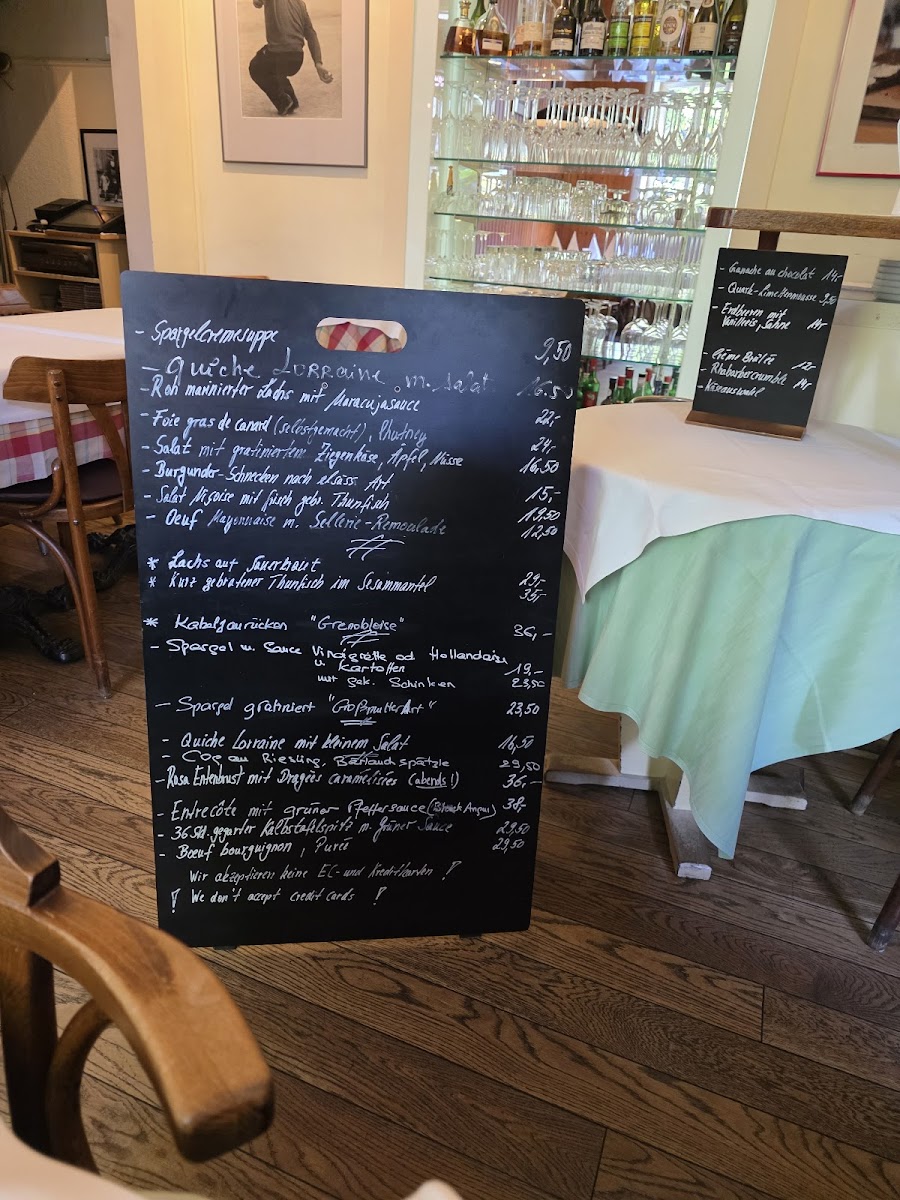 - Spargelcremesuppe 9,50
- Quiche Lorraine m. Salat 16.50
- Roh marinierter Lachs mit Maracujasauce 22,-
- Foie gras de canard (selbstgemacht), Chutney 24,-
- Salat mit gratiniertem Ziegenkäse, Äpfel, Nüsse 16,50
- Burgunder-Schnecken nach elsäss. Art 15,-
- Salat Niçoise mit frisch gebr. Thunfisch 19,50
- Oeuf Mayonnaise m. Sellerie-Remoulade 12,50
* Lachs auf Sauerkraut 29,-
* Kurz gebratener Thunfisch im Sesammantel 35,-
* Kabeljaurücken "Grenobloise" 36,-
- Spargel m. Sauce Vinaigrette od Hollandaise
u Kartoffen 19,-
mit gek. Schinken 23,50
- Spargel gratiniert "Großmutter Art" 23,50
- Quiche Lorraine mit kleinem Salat 16,50
- Coq au Riesling, Bärlauchspätzle 29,50
- Rosa Entenbrust mit Dragées caramelisées (abends!) 36,-
- Entrecôte mit grüner Pfeffersauce (Black Angus) 38,-
- 36 Std. gegarter Kalbstafelspitz m. Grüner Sauce 29,50
- Bœuf bourguignon, Purée 29,50
Wir akzeptieren keine EC- und Kreditkarten !
! We don't accept credit cards !
- Ganache au chocolat 14,-
- Quark-Limettenmousse 9,50
- Erdbeeren mit
Vanilleeis, Sahne 14,-
- Crème Brûlée 12,-
- Rhabarbercrumble 14,-
- Käseauswahl